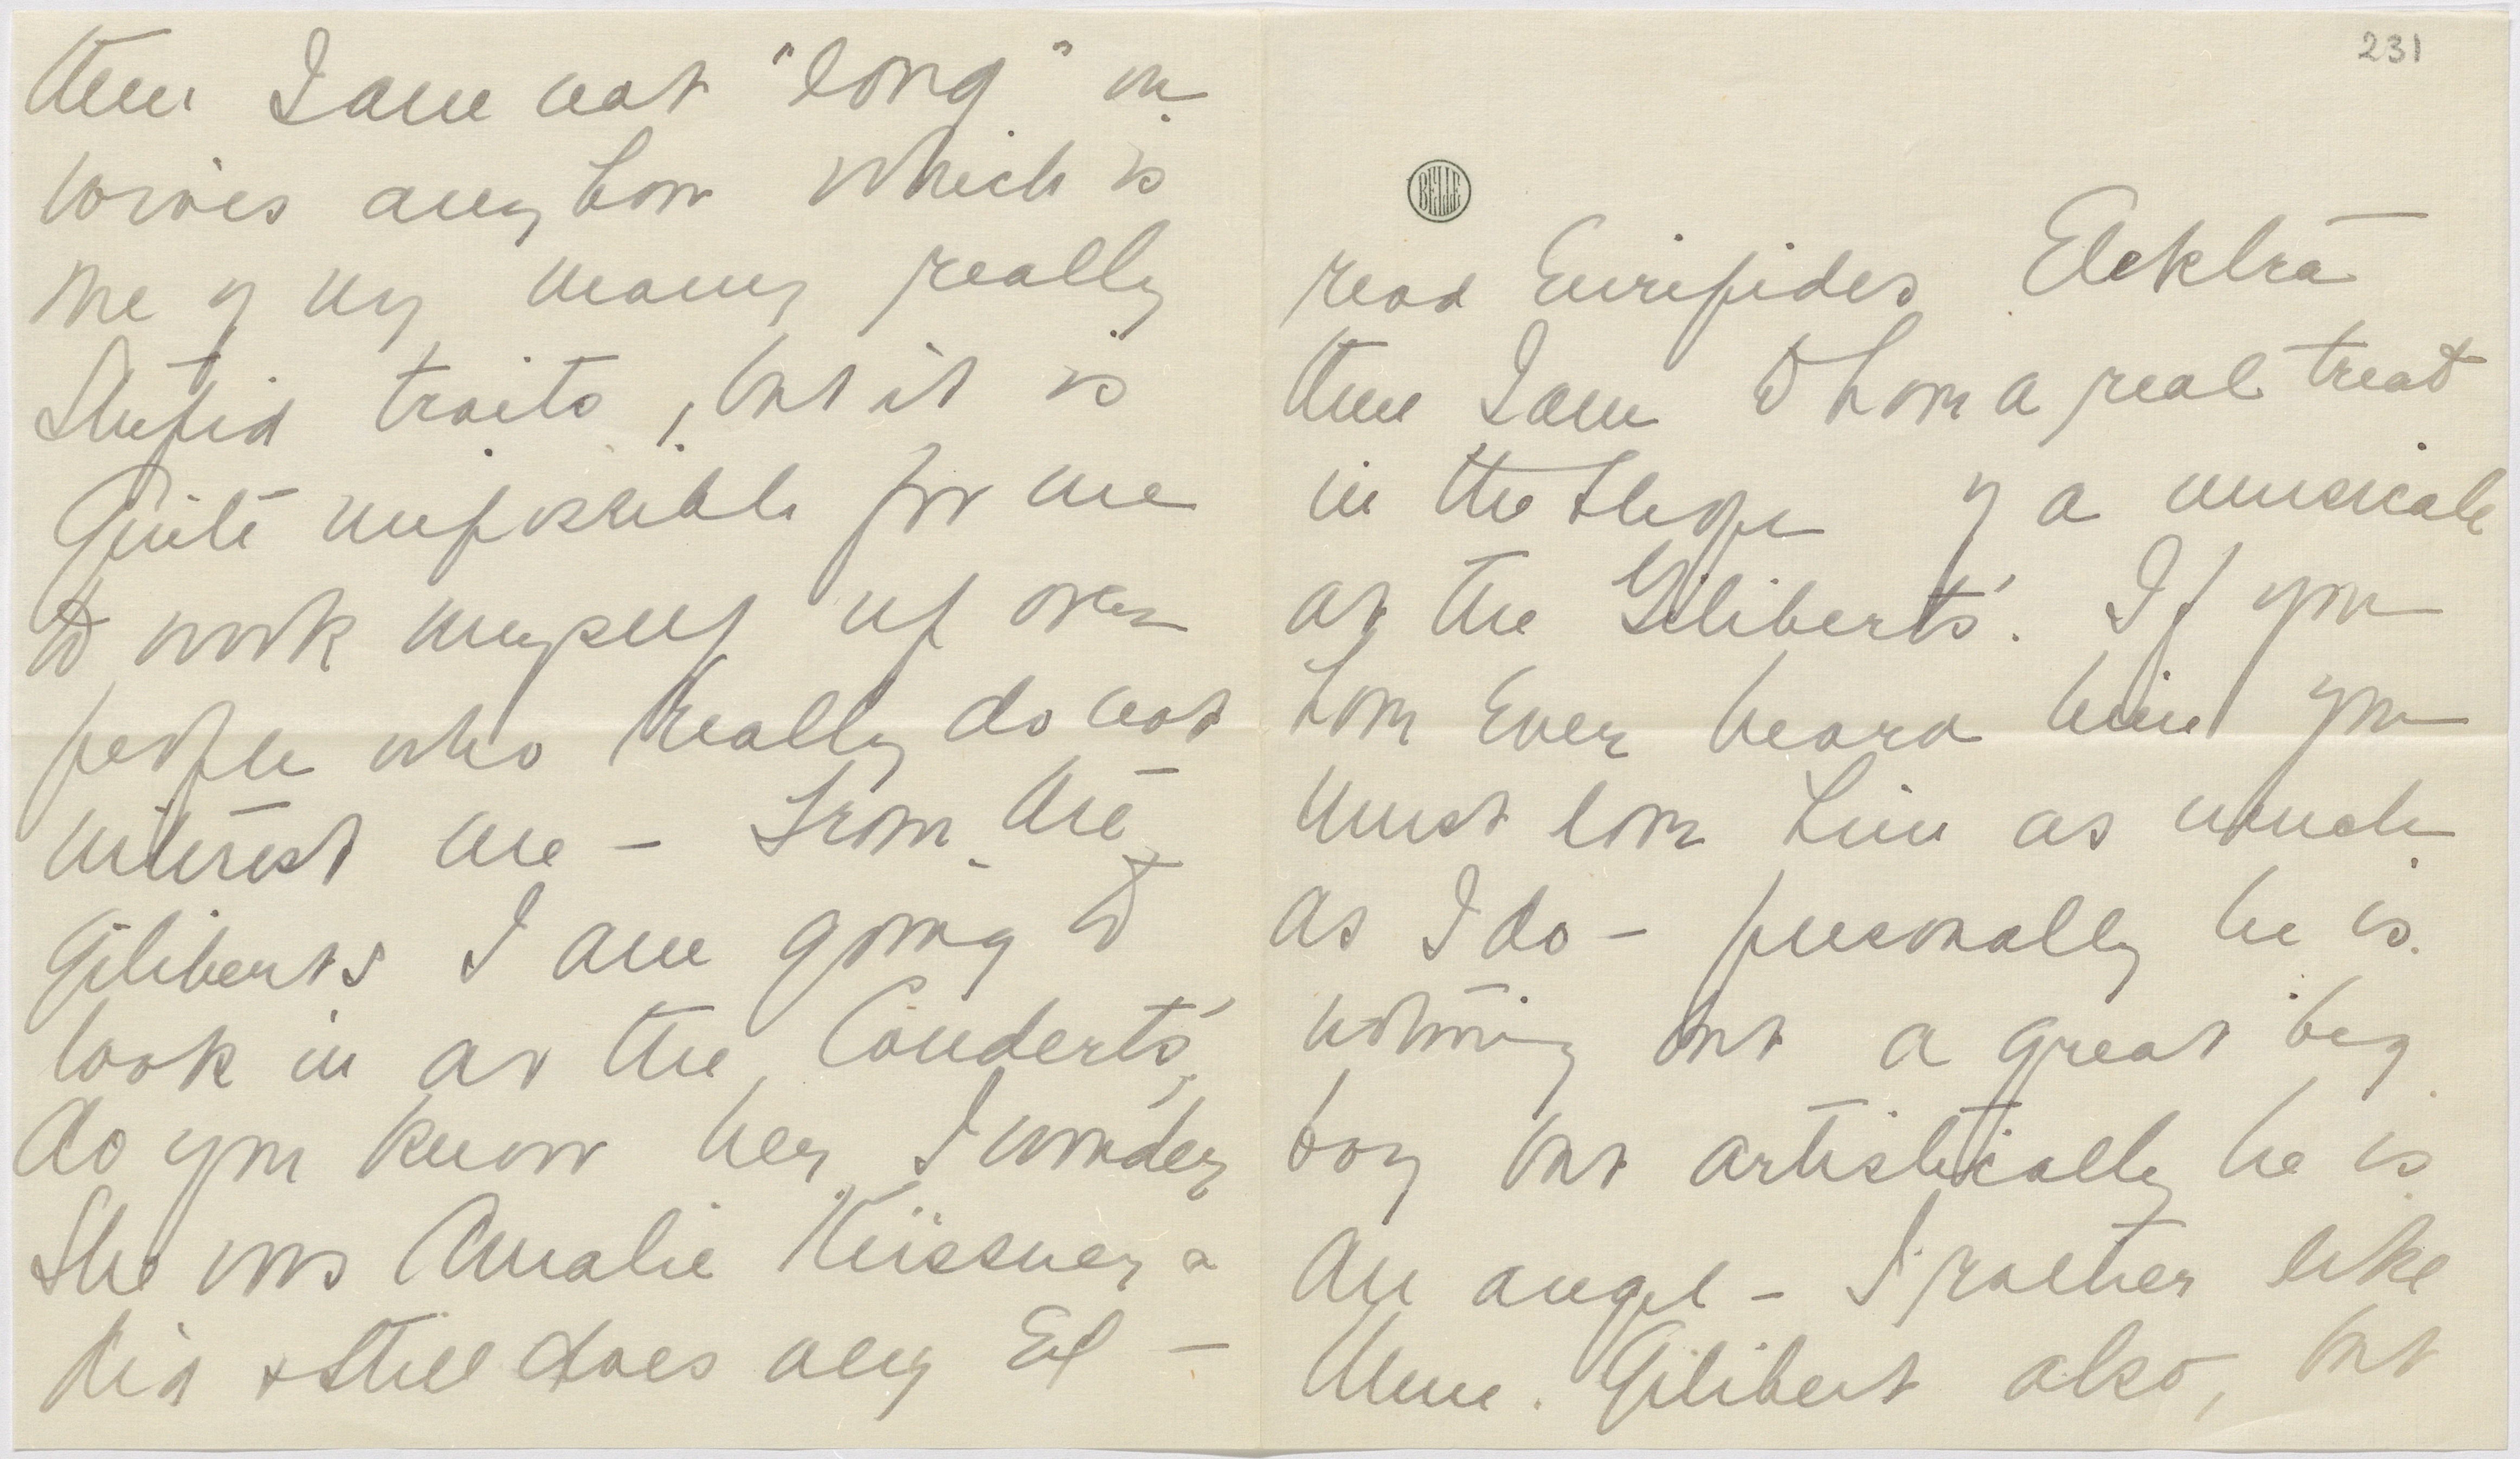 then I am not "long" on
wives anyhow which is
one of my many really
Stupid traits, but it is
Quite impossible for me
to work myself up over
people who really do not
interest me – From the
Giliberts I am going to
look in at the Couderts',
do you know her, I wonder,
She was Amalie Küssner &
did & still does any El –
231
BELLE
read Euripides Elektra
then I am to have a real treat
in the shape of a musicale
at the Giliberts'. If you
have Ever heard him you
must love him as much
as I do – personally he is
nothing but a great big
boy but artistically he is
an angel – I rather like
Mme. Gilibert also, but